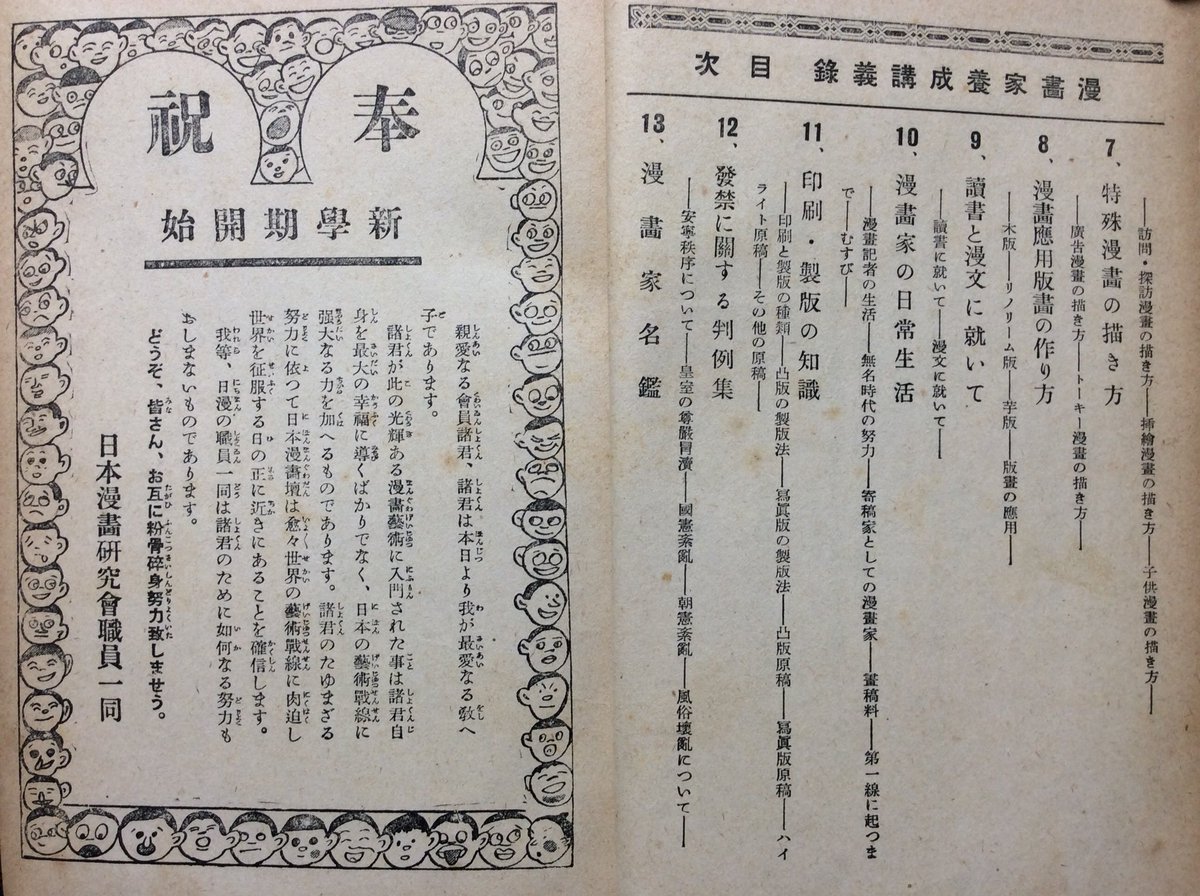 漫畫家養成講義錄 目次
――訪問・探訪漫畫の描き方――揷繪漫畫の描き方――子供漫畫の描き方――
7、特殊漫畫の描き方
――廣告漫畫の描き方――トーキー漫畫の描き方――
8、漫畫應用版畫の作り方
――木版――リノリーム版――芋版――版畫の應用――
9、讀書と漫文に就いて
――讀書に就いて――漫文に就いて――
10、漫畫家の日常生活
――漫畫記者の生活――無名時代の努力――寄稿家としての漫畫家――畫稿料――第一線に起つま
で――むすび――
11、印刷・製版の知識
――印刷と製版の種類――凸版の製版法――寫眞版の製版法――凸版原稿――寫眞版原稿――ハイ
ライト原稿――その他の原稿――
12、發禁に關する判例集
――安寧秩序について――皇室の尊嚴冒瀆――國憲紊亂――朝憲紊亂――風俗壞亂について――
13、漫畫家名鑑
奉祝
新學期開始
親愛なる會員諸君、諸君は本日より我が最愛なる敎へ
子であります。
諸君が此の光輝ある漫畫藝術に入門された事は諸君自
身を最大の幸福に導くばかりでなく、日本の藝術戰線に
强大なる力を加へるものであります。諸君のたゆまざる
努力に依つて日本漫畫壇は愈々世界の藝術戰線に肉迫し
世界を征服する日の正に近きにあることを確信します。
我等、日漫の職員一同は諸君のために如何なる努力も
おしまないものであります。
どうぞ、皆さん、お互に粉骨碎身努力致しませう。
日本漫畫研究會職員一同